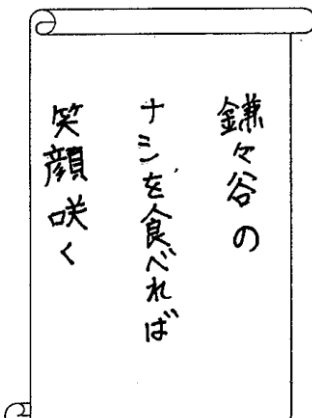 鎌々谷の
ナシを食べれば
笑顔咲く